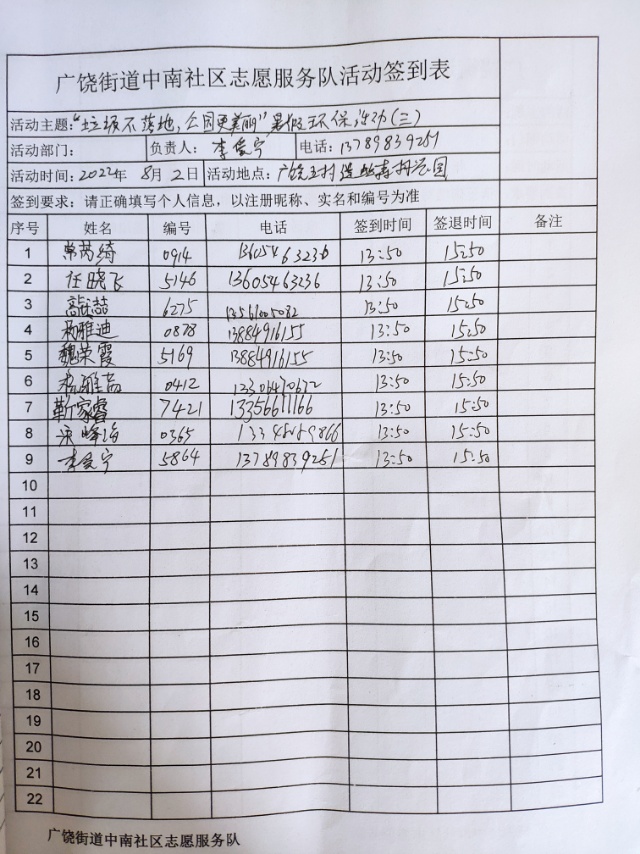 广饶街道中南社区志愿服务队活动签到表
活动主题：“垃圾不落地，公园更美丽”暑假环保活动（三）
活动部门： 负责人：李爱宁 电话：13789839251
活动时间：2022年8月2日 活动地点：广饶
签到要求：请正确填写个人信息，以注册昵称、实名和编号为准
序号 姓名 编号 电话 签到时间 签退时间 备注
1 常芮绮 0914 13605463236 13:50 15:50
2 任晓飞 5146 13605463236 13:50 15:50
3 6275 13561005082 13:50 15:50
4 杨雅迪 0878 13884916155 13:50 15:50
5 魏荣霞 5169 13884916155 13:50 15:50
6 0412 13:50 15:50
7 靳家睿 7421 13356611166 13:50 15:50
8 0365 13:50 15:50
9 李爱宁 5864 13789839251 13:50 15:50
10
11
12
13
14
15
16
17
18
19
20
21
22
广饶街道中南社区志愿服务队